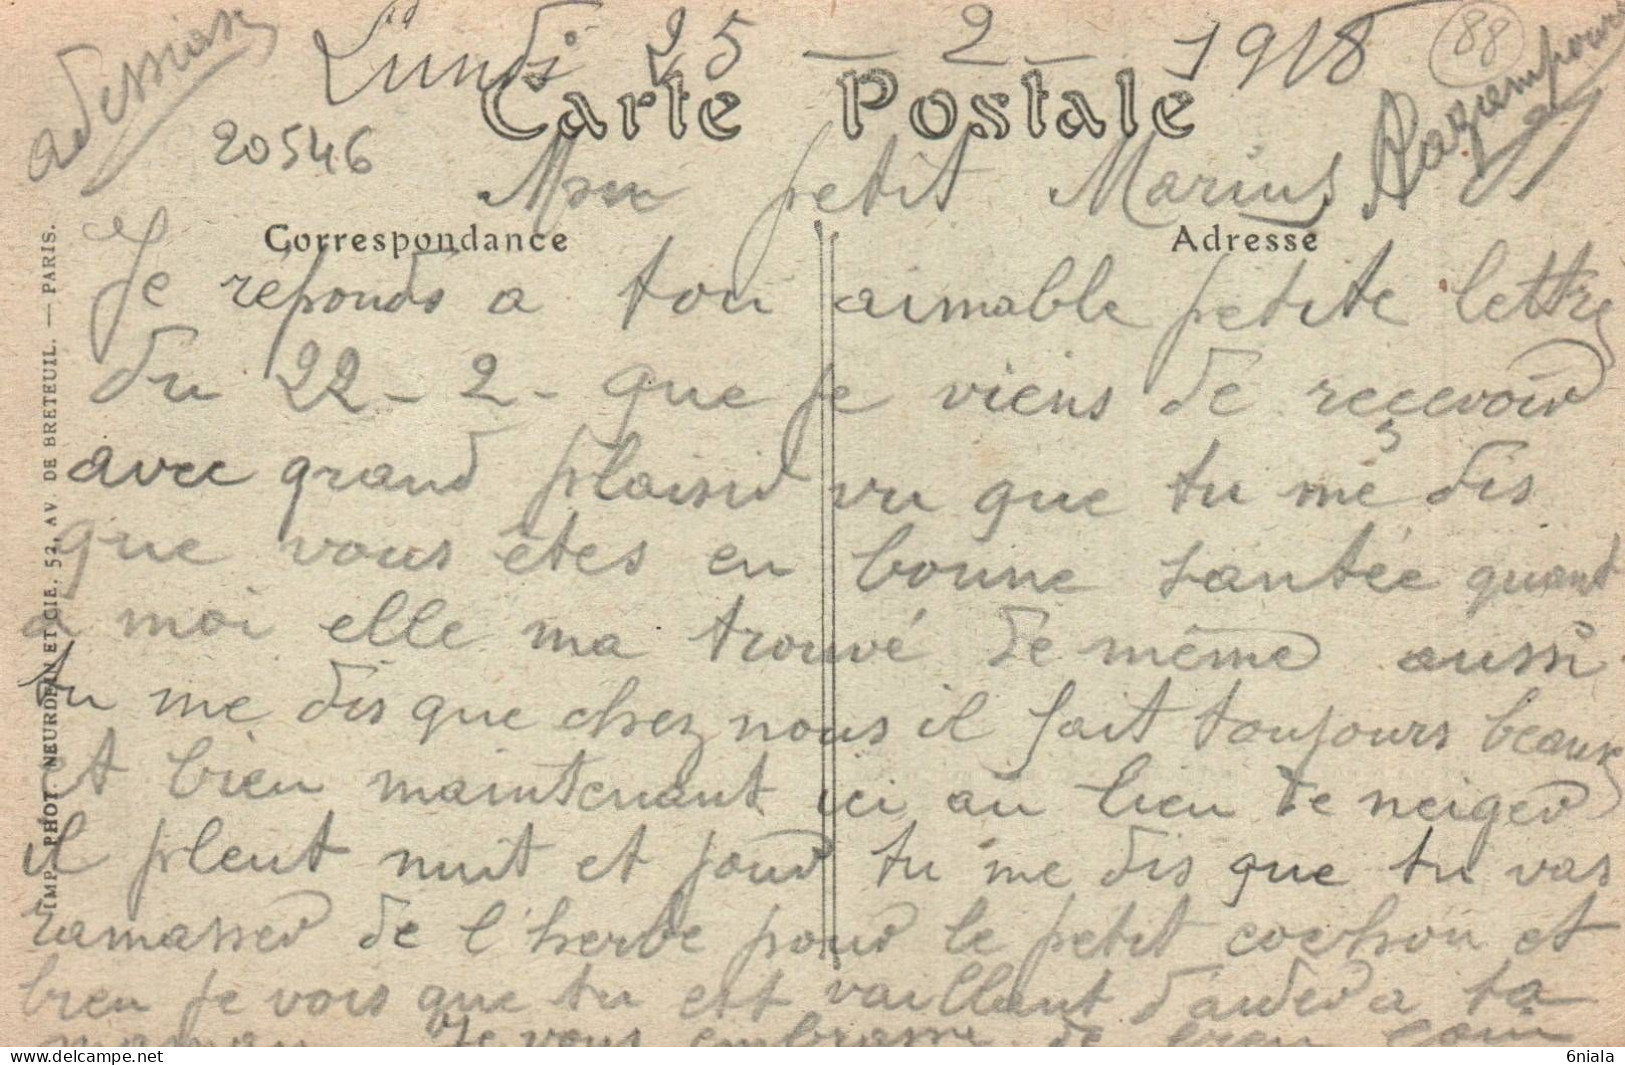 Lundi 25 — 2 — 1918
88
20546
Carte Postale
Mon petit Marius
Correspondance
Adresse
Je réponds a ton aimable petite lettre
du 22 - 2 - que je viens de reçevoir
avec grand plaisir vu que tu me dis
que vous êtes en bonne santée quant
a moi elle ma trouvé de même aussi
tu me dis que chez nous il fait toujours beaux
et bien maintenant ici au lieu de neiger
il pleut nuit et jour tu me dis que tu vas
ramasser de l'herbe pour le petit cochon et
bien je vois que tu est vaillant d'aider a ta
maman Je vous embrasse de bien loin
IMP. PHOT. NEURDEIN ET CIE. 52, AV. DE BRETEUIL. — PARIS.
delcampe.net
6niala